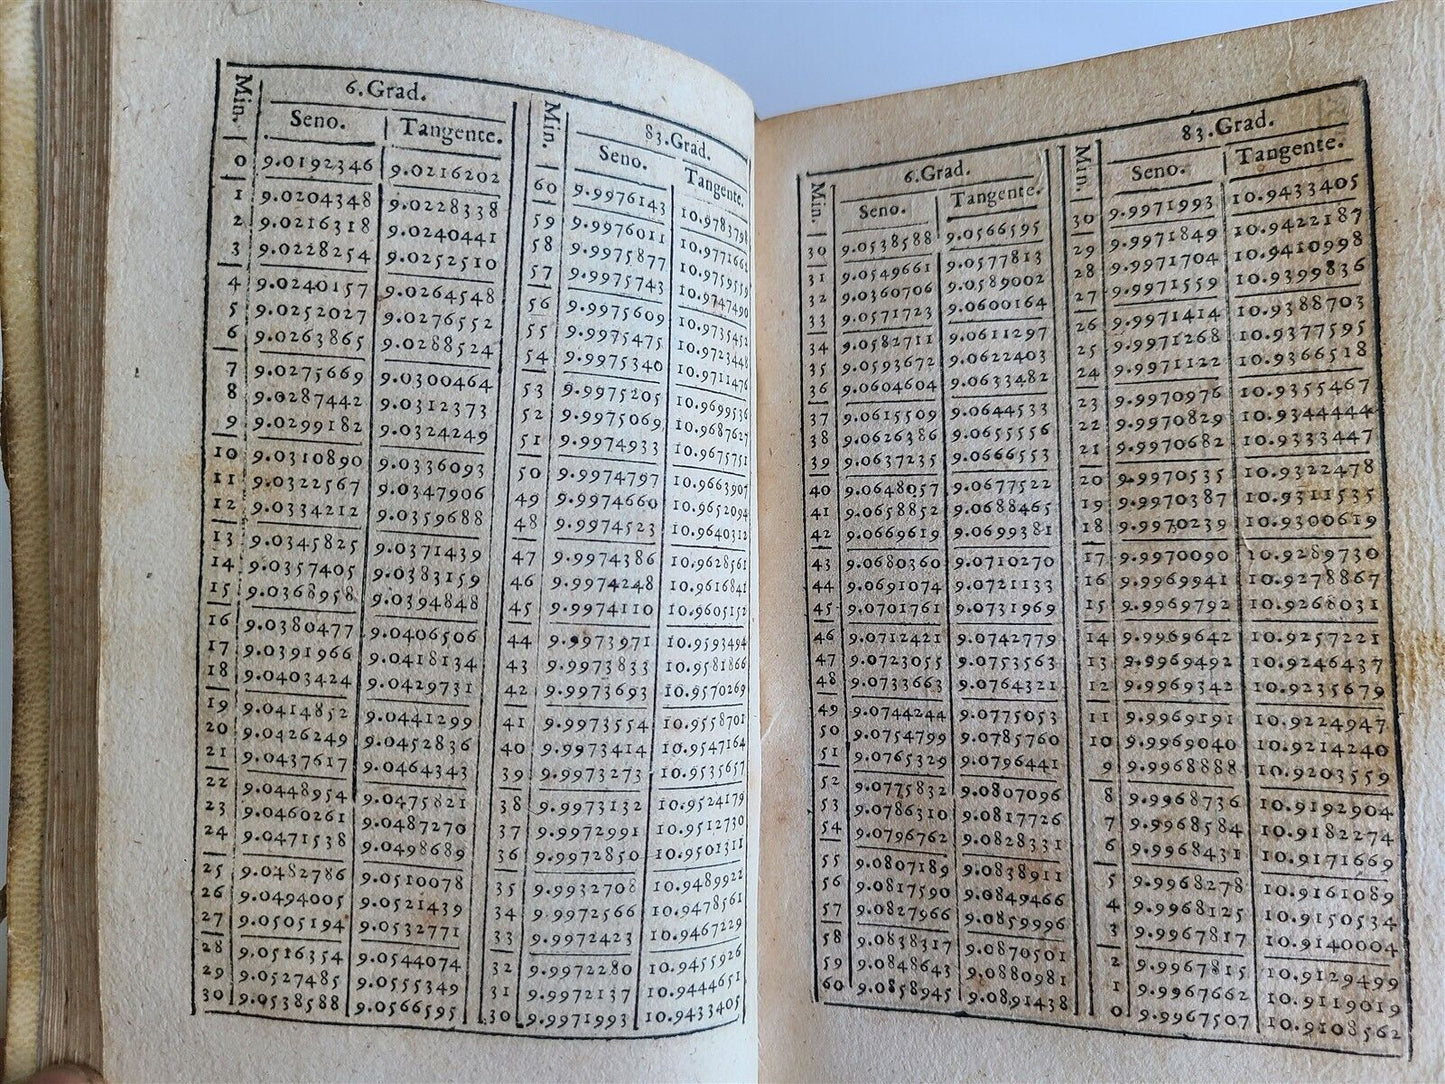 Min. 6.Grad. Min. 83.Grad.
Seno. Tangente. Seno. Tangente.
0 9.0192346 9.0216202 60 9.9976143 10.9783798
1 9.0204348 9.0228338 59 9.9976011 10.9771662
2 9.0216318 9.0240441 58 9.9975877 10.9759559
3 9.0228254 9.0252510 57 9.9975743 10.9747490
4 9.0240157 9.0264548 56 9.9975609 10.9735452
5 9.0252027 9.0276552 55 9.9975475 10.9723448
6 9.0263865 9.0288524 54 9.9975340 10.9711476
7 9.0275669 9.0300464 53 9.9975205 10.9699536
8 9.0287442 9.0312373 52 9.9975069 10.9687627
9 9.0299182 9.0324249 51 9.9974933 10.9675751
10 9.0310890 9.0336093 50 9.9974797 10.9663907
11 9.0322567 9.0347906 49 9.9974660 10.9652094
12 9.0334212 9.0359688 48 9.9974523 10.9640312
13 9.0345825 9.0371439 47 9.9974386 10.9628561
14 9.0357405 9.0383159 46 9.9974248 10.9616841
15 9.0368958 9.0394848 45 9.9974110 10.9605152
16 9.0380477 9.0406506 44 9.9973971 10.9593494
17 9.0391966 9.0418134 43 9.9973833 10.9581866
18 9.0403424 9.0429731 42 9.9973693 10.9570269
19 9.0414852 9.0441299 41 9.9973554 10.9558701
20 9.0426249 9.0452836 40 9.9973414 10.9547164
21 9.0437617 9.0464343 39 9.9973273 10.9535657
22 9.0448954 9.0475821 38 9.9973132 10.9524179
23 9.0460261 9.0487270 37 9.9972991 10.9512730
24 9.0471538 9.0498689 36 9.9972850 10.9501311
25 9.0482786 9.0510078 35 9.9932708 10.9489922
26 9.0494005 9.0521439 34 9.9972566 10.9478561
27 9.0505194 9.0532771 33 9.9972423 10.9467229
28 9.0516354 9.0544074 32 9.9972280 10.9455926
29 9.0527485 9.0555349 31 9.9972137 10.9444651
30 9.0538588 9.0566595 30 9.9971993 10.9433405
Min. 6.Grad. Min. 83.Grad.
Seno. Tangente. Seno. Tangente.
30 9.0538588 9.0566595 30 9.9971993 10.9433405
31 9.0549661 9.0577813 29 9.9971849 10.9422187
32 9.0360706 9.0589002 28 9.9971704 10.9410998
33 9.0571723 9.0600164 27 9.9971559 10.9399836
34 9.0582711 9.0611297 26 9.9971414 10.9388703
35 9.0593672 9.0622403 25 9.9971268 10.9377595
36 9.0604604 9.0633482 24 9.9971122 10.9366518
37 9.0615509 9.0644533 23 9.9970976 10.9355467
38 9.0626386 9.0655556 22 9.9970829 10.9344444
39 9.0637235 9.0666553 21 9.9970682 10.9333447
40 9.0648057 9.0677522 20 9.9970535 10.9322478
41 9.0658852 9.0688465 19 9.9970387 10.9311535
42 9.0669619 9.0699381 18 9.9970239 10.9300619
43 9.0680360 9.0710270 17 9.9970090 10.9289730
44 9.0691074 9.0721133 16 9.9969941 10.9278867
45 9.0701761 9.0731969 15 9.9969792 10.9268031
46 9.0712421 9.0742779 14 9.9969642 10.9257221
47 9.0723055 9.0753563 13 9.9969492 10.9246437
48 9.0733663 9.0764321 12 9.9969342 10.9235679
49 9.0744244 9.0775053 11 9.9969191 10.9224947
50 9.0754799 9.0785760 10 9.9969040 10.9214240
51 9.0765329 9.0796441 9 9.9968888 10.9203559
52 9.0775832 9.0807096 8 9.9968736 10.9192904
53 9.0786310 9.0817726 7 9.9968584 10.9182274
54 9.0796762 9.0828331 6 9.9968431 10.9171669
55 9.0807189 9.0838911 5 9.9968278 10.9161089
56 9.0817590 9.0849466 4 9.9968125 10.9150534
57 9.0827966 9.0859996 3 9.9967817 10.9140004
58 9.0838317 9.0870501 2 9.9967815 10.9129499
59 9.0848643 9.0880981 1 9.9967662 10.9119019
60 9.0858945 9.0891438 0 9.9967507 10.9108562